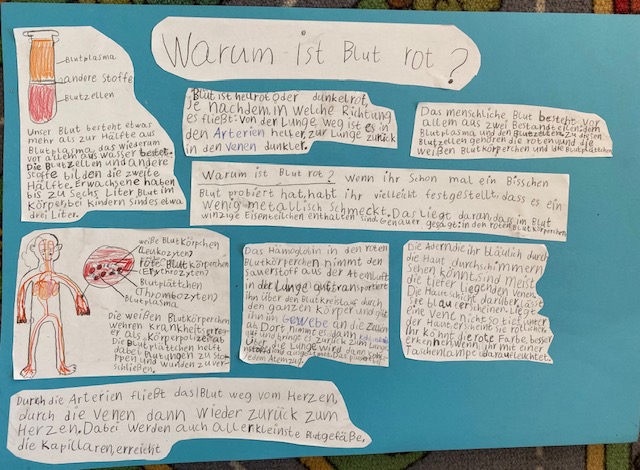 Warum ist Blut rot?
Blutplasma
andere Stoffe
Blutzellen
Unser Blut besteht etwas
mehr als zur Hälfte aus
Blutplasma, das wiederum
vor allem aus wasser besteht.
Die Blutzellen und andere
Stoffe bilden die zweite
Hälfte. Erwachsene haben
bis zu sechs Liter Blut im
Körper, bei kindern sind es etwa
drei Liter.
Blut ist hellrot oder dunkelrot,
je nachdem, in welche Richtung
es fließt: von der Lunge weg ist es in
den Arterien heller, zur Lunge zurück
in den venen dunkler.
Das menschliche Blut besteht vor
allem aus zwei Bestandteilen: dem
Blutplasma und den Blutzellen. Zu diesen
Blutzellen gehören die roten und die
weißen Blutkörperchen und die Blutplättchen
Warum ist Blut rot? wenn ihr schon mal ein Bisschen
Blut probiert hat, habt ihr vielleicht festgestellt, dass es ein
wenig metallisch schmeckt. Das liegt daran, dass im Blut
winzige Eisenteilchen enthalten sind. Genauer gesagt: in den roten Blutkörperchen
weiße Blutkörpchen
(Leukozyten)
rote Blutkörperchen
(Erythrozyten)
Blutplättchen
(Thrombozyten)
Blutplasma
Die weißen Blutkörpchen
wehren krankheitserre-
ger als Körperpolizei ab
Die Blutplättchen helft
dabei Blutungen zu sto-
ppen und wunden zu ver-
schließen.
Das Hämoglobin in den roten
Blutkörperchen nimmt den
sauerstoff aus der Atenluft
in der Lunge auf, transportiert
ihn über den Blutkreislauf durch
den ganzen körper und gibt
ihn im Gewebe an die Zellen
ab. Dort nimmt es dann
auf und bringt es zurück zum Lunge
Über die Lunge wird dann
Die Adern, die ihr bläulich durch
die Haut durchschimmern
sehen könnt, sind meist
die tiefer liegenden venen.
Die Haut schicht darüber lässt
sie blau erscheinen. Liegt
eine vene nicht so tief unter
der Haut, erscheint sie rötlicher.
Ihr könnt die rote Farbe, besser
erkennen, wenn ihr mit einer
Taschenlampe darauf leuchtet.
Durch die Arterien fließt das Blut weg vom Herzen,
durch die venen dann wieder zurück zum
Herzen. Dabei werden auch allerkleinste Blutgefäße,
die Kapillaren, erreicht